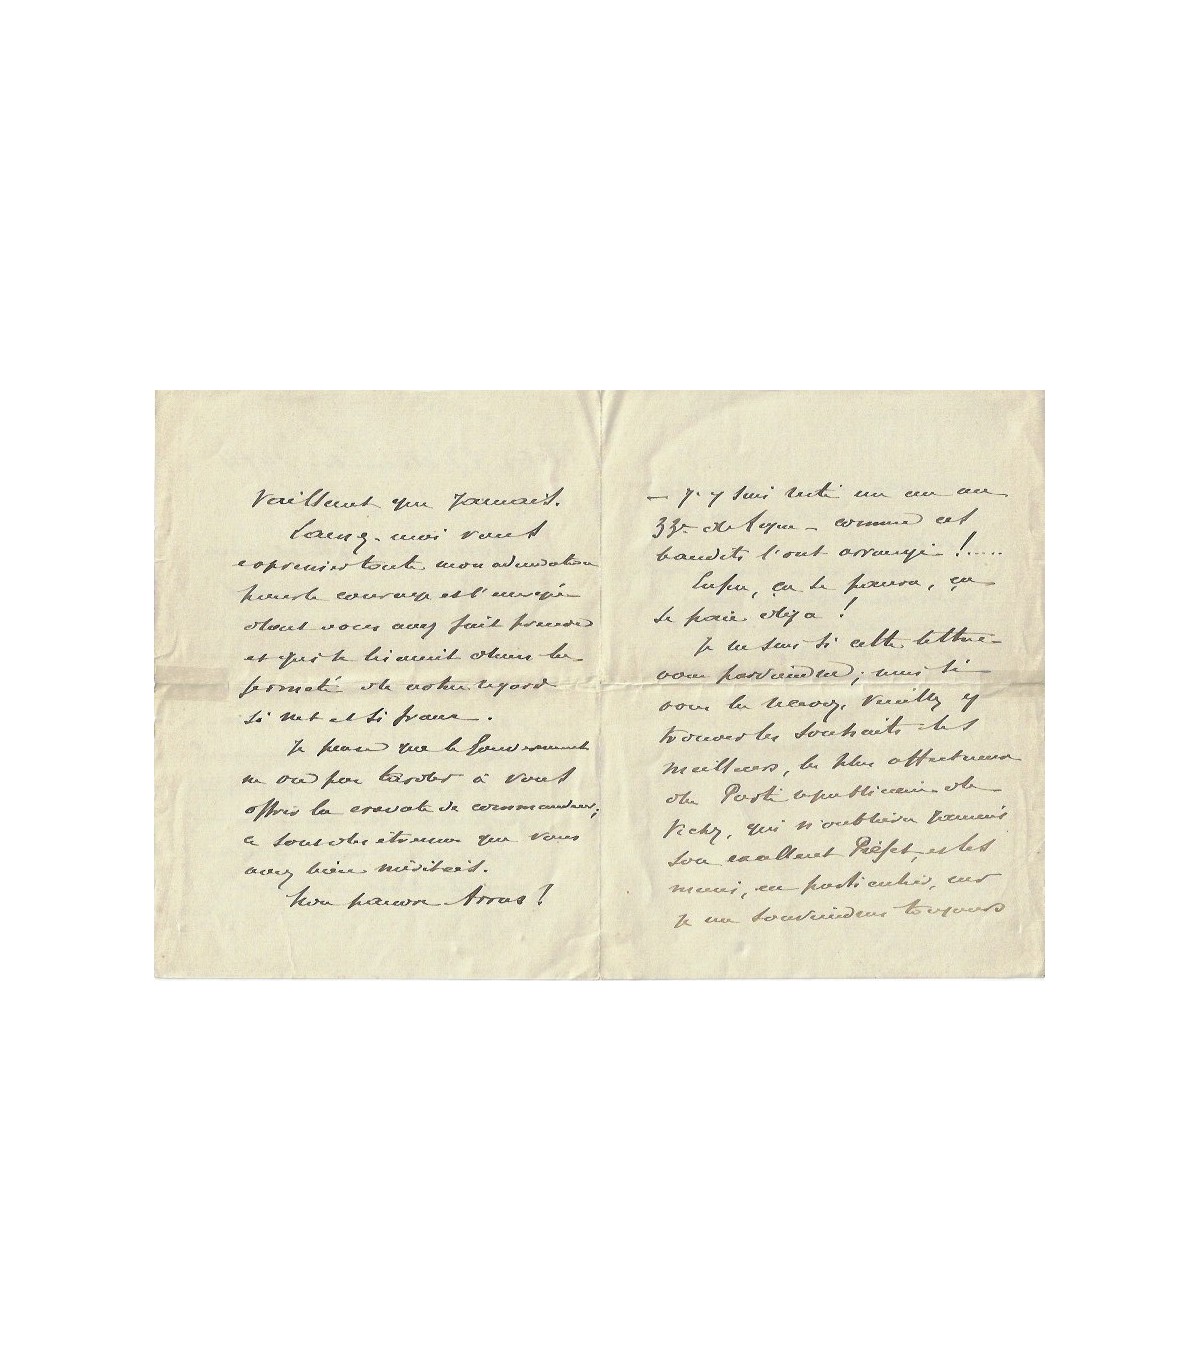 vaillant que jamais.
Laissez-moi vous
exprimer toute mon admiration
pour le courage et l'énergie
dont vous avez fait preuve
et qui se lisaient dans la
fermeté de votre regard
si net et si franc.
Je pense que le Gouvernement
ne va pas tarder à vous
offrir la cravate de commandeur;
ce sont des étrennes que vous
avez bien méritées.
Mon pauvre Arras!
– J'y suis resté un an au
33e de ligne – comme ces
bandits l'ont arrangé!.....
Enfin, ça se paiera, ça
se paie déjà!
Je ne sais si cette lettre
vous parviendra; mais si
vous la recevez, veuillez y
trouver les souhaits les
meilleurs, les plus affectueux
du Parti républicain de
Vichy, qui n'oubliera jamais
son excellent Préfet, et les
miens, en particulier, car
je me souviendrai toujours